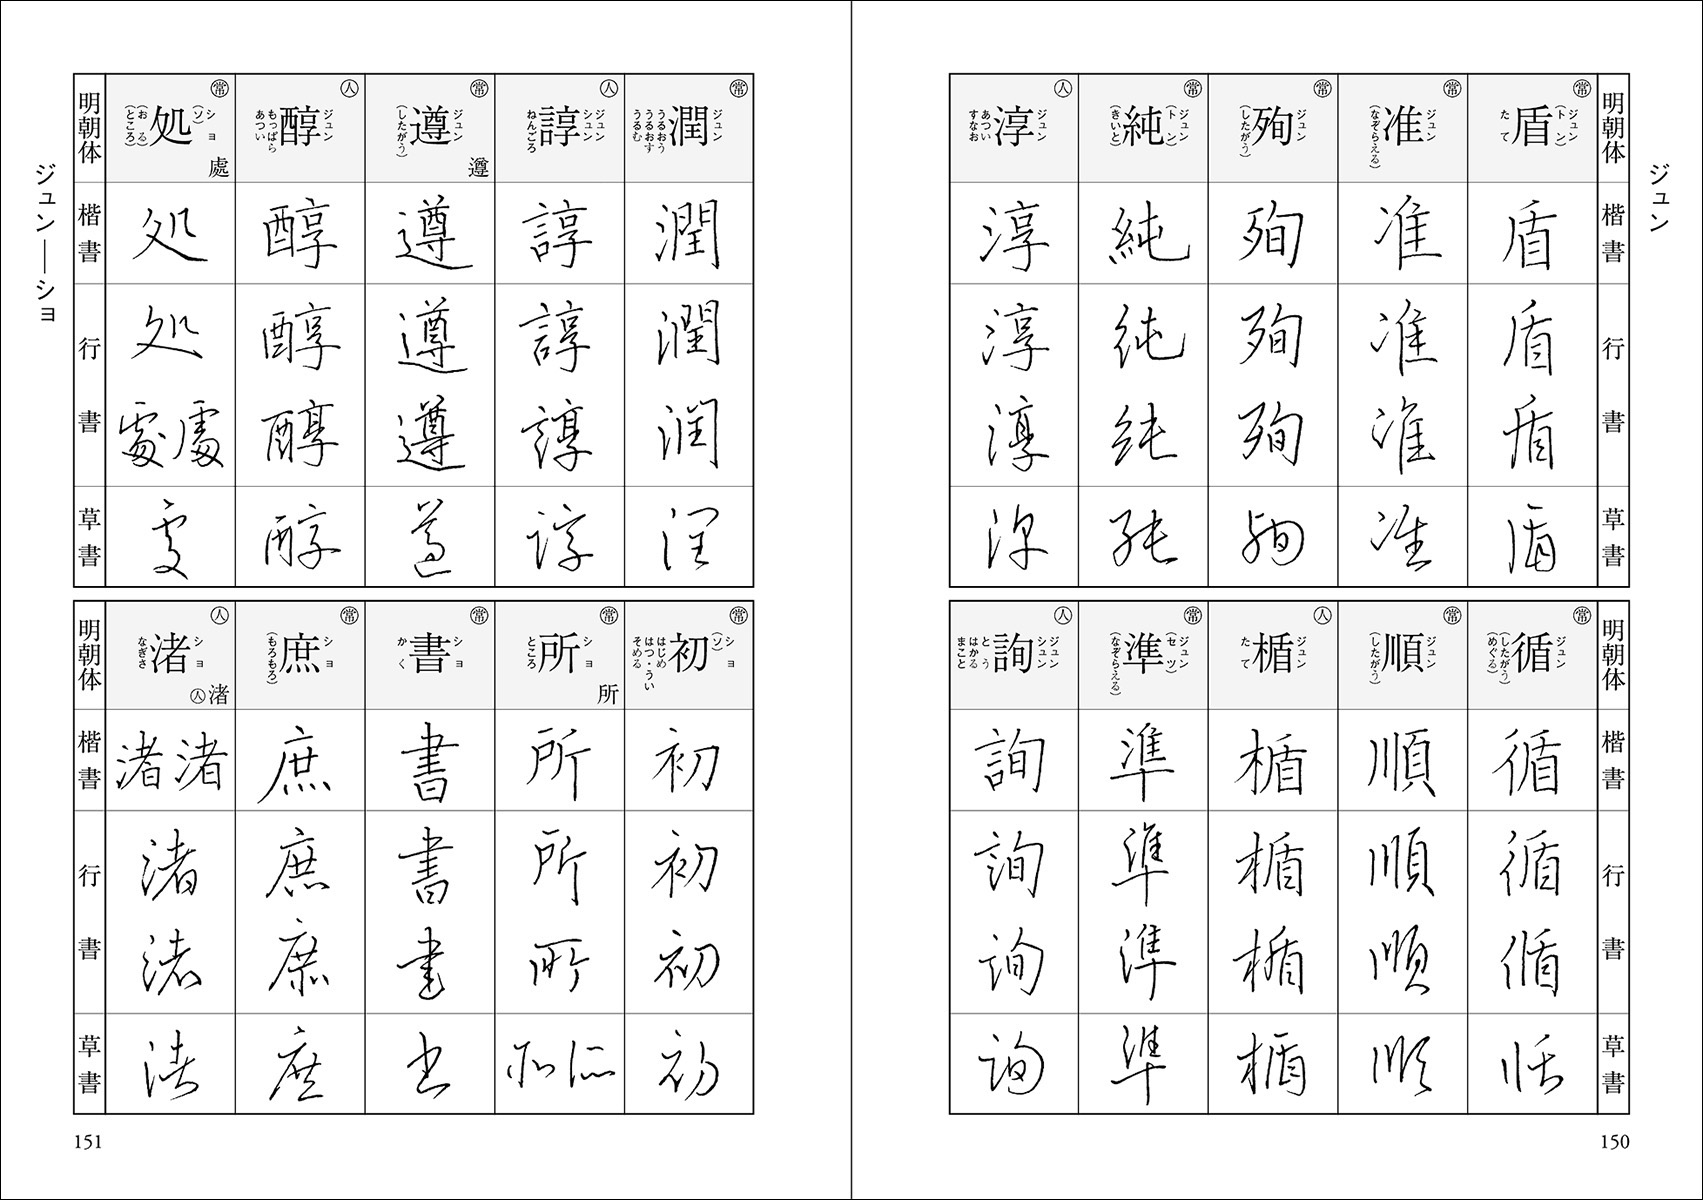 ジュン
明朝体
楷書
行書
草書
常
盾
ジュン
(トン)
たて
盾
盾
盾
盾
常
准
ジュン
(なぞらえる)
准
准
准
准
常
殉
ジュン
(したがう)
殉
殉
殉
殉
常
純
ジュン
(トン)
(きいと)
純
純
純
純
人
淳
ジュン
あつい
すなお
淳
淳
淳
淳
明朝体
楷書
行書
草書
常
循
ジュン
(したがう)
(めぐる)
循
循
循
循
常
順
ジュン
(したがう)
順
順
順
順
人
楯
ジュン
たて
楯
楯
楯
楯
常
準
ジュン
(セツ)
(なぞらえる)
準
準
準
準
人
詢
ジュン
シュン
とう
はかる
まこと
詢
詢
詢
詢
150
常
潤
ジュン
うるおう
うるおす
うるむ
潤
潤
潤
潤
人
諄
ジュン
シュン
ねんごろ
諄
諄
諄
諄
常
遵
ジュン
(したがう)
遵
遵
遵
遵
遵
人
醇
ジュン
もっぱら
あつい
醇
醇
醇
醇
常
処
ショ
(ソ)
(おる)
(ところ)
處
処
処
處處
處
明朝体
楷書
行書
草書
常
初
ショ
(ソ)
はじめ
はつ・うい
そめる
初
初
初
初
常
所
ショ
ところ
所
所
所
所
所所
常
書
ショ
かく
書
書
書
書
常
庶
ショ
(もろもろ)
庶
庶
庶
庶
人
渚
ショ
なぎさ
人渚
渚渚
渚
渚
渚
明朝体
楷書
行書
草書
ジュン―ショ
151